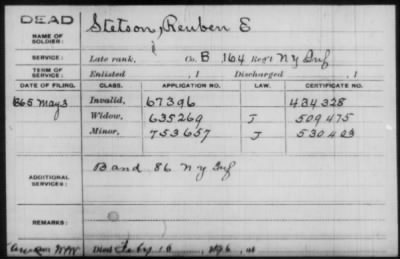 DEAD
NAME OF SOLDIER: Stetson, Reuben E
SERVICE: Late rank, Co. B 164 Reg't N Y Inf
TERM OF SERVICE: Enlisted , 1 Discharged , 1
DATE OF FILING. CLASS. APPLICATION NO. LAW. CERTIFICATE NO.
1865 May 3 Invalid, 67396 434328
Widow, 635269 J 509475
Minor, 753657 J 530403
ADDITIONAL SERVICES: Band 86 N Y Inf
REMARKS:
Died Feby 18 at